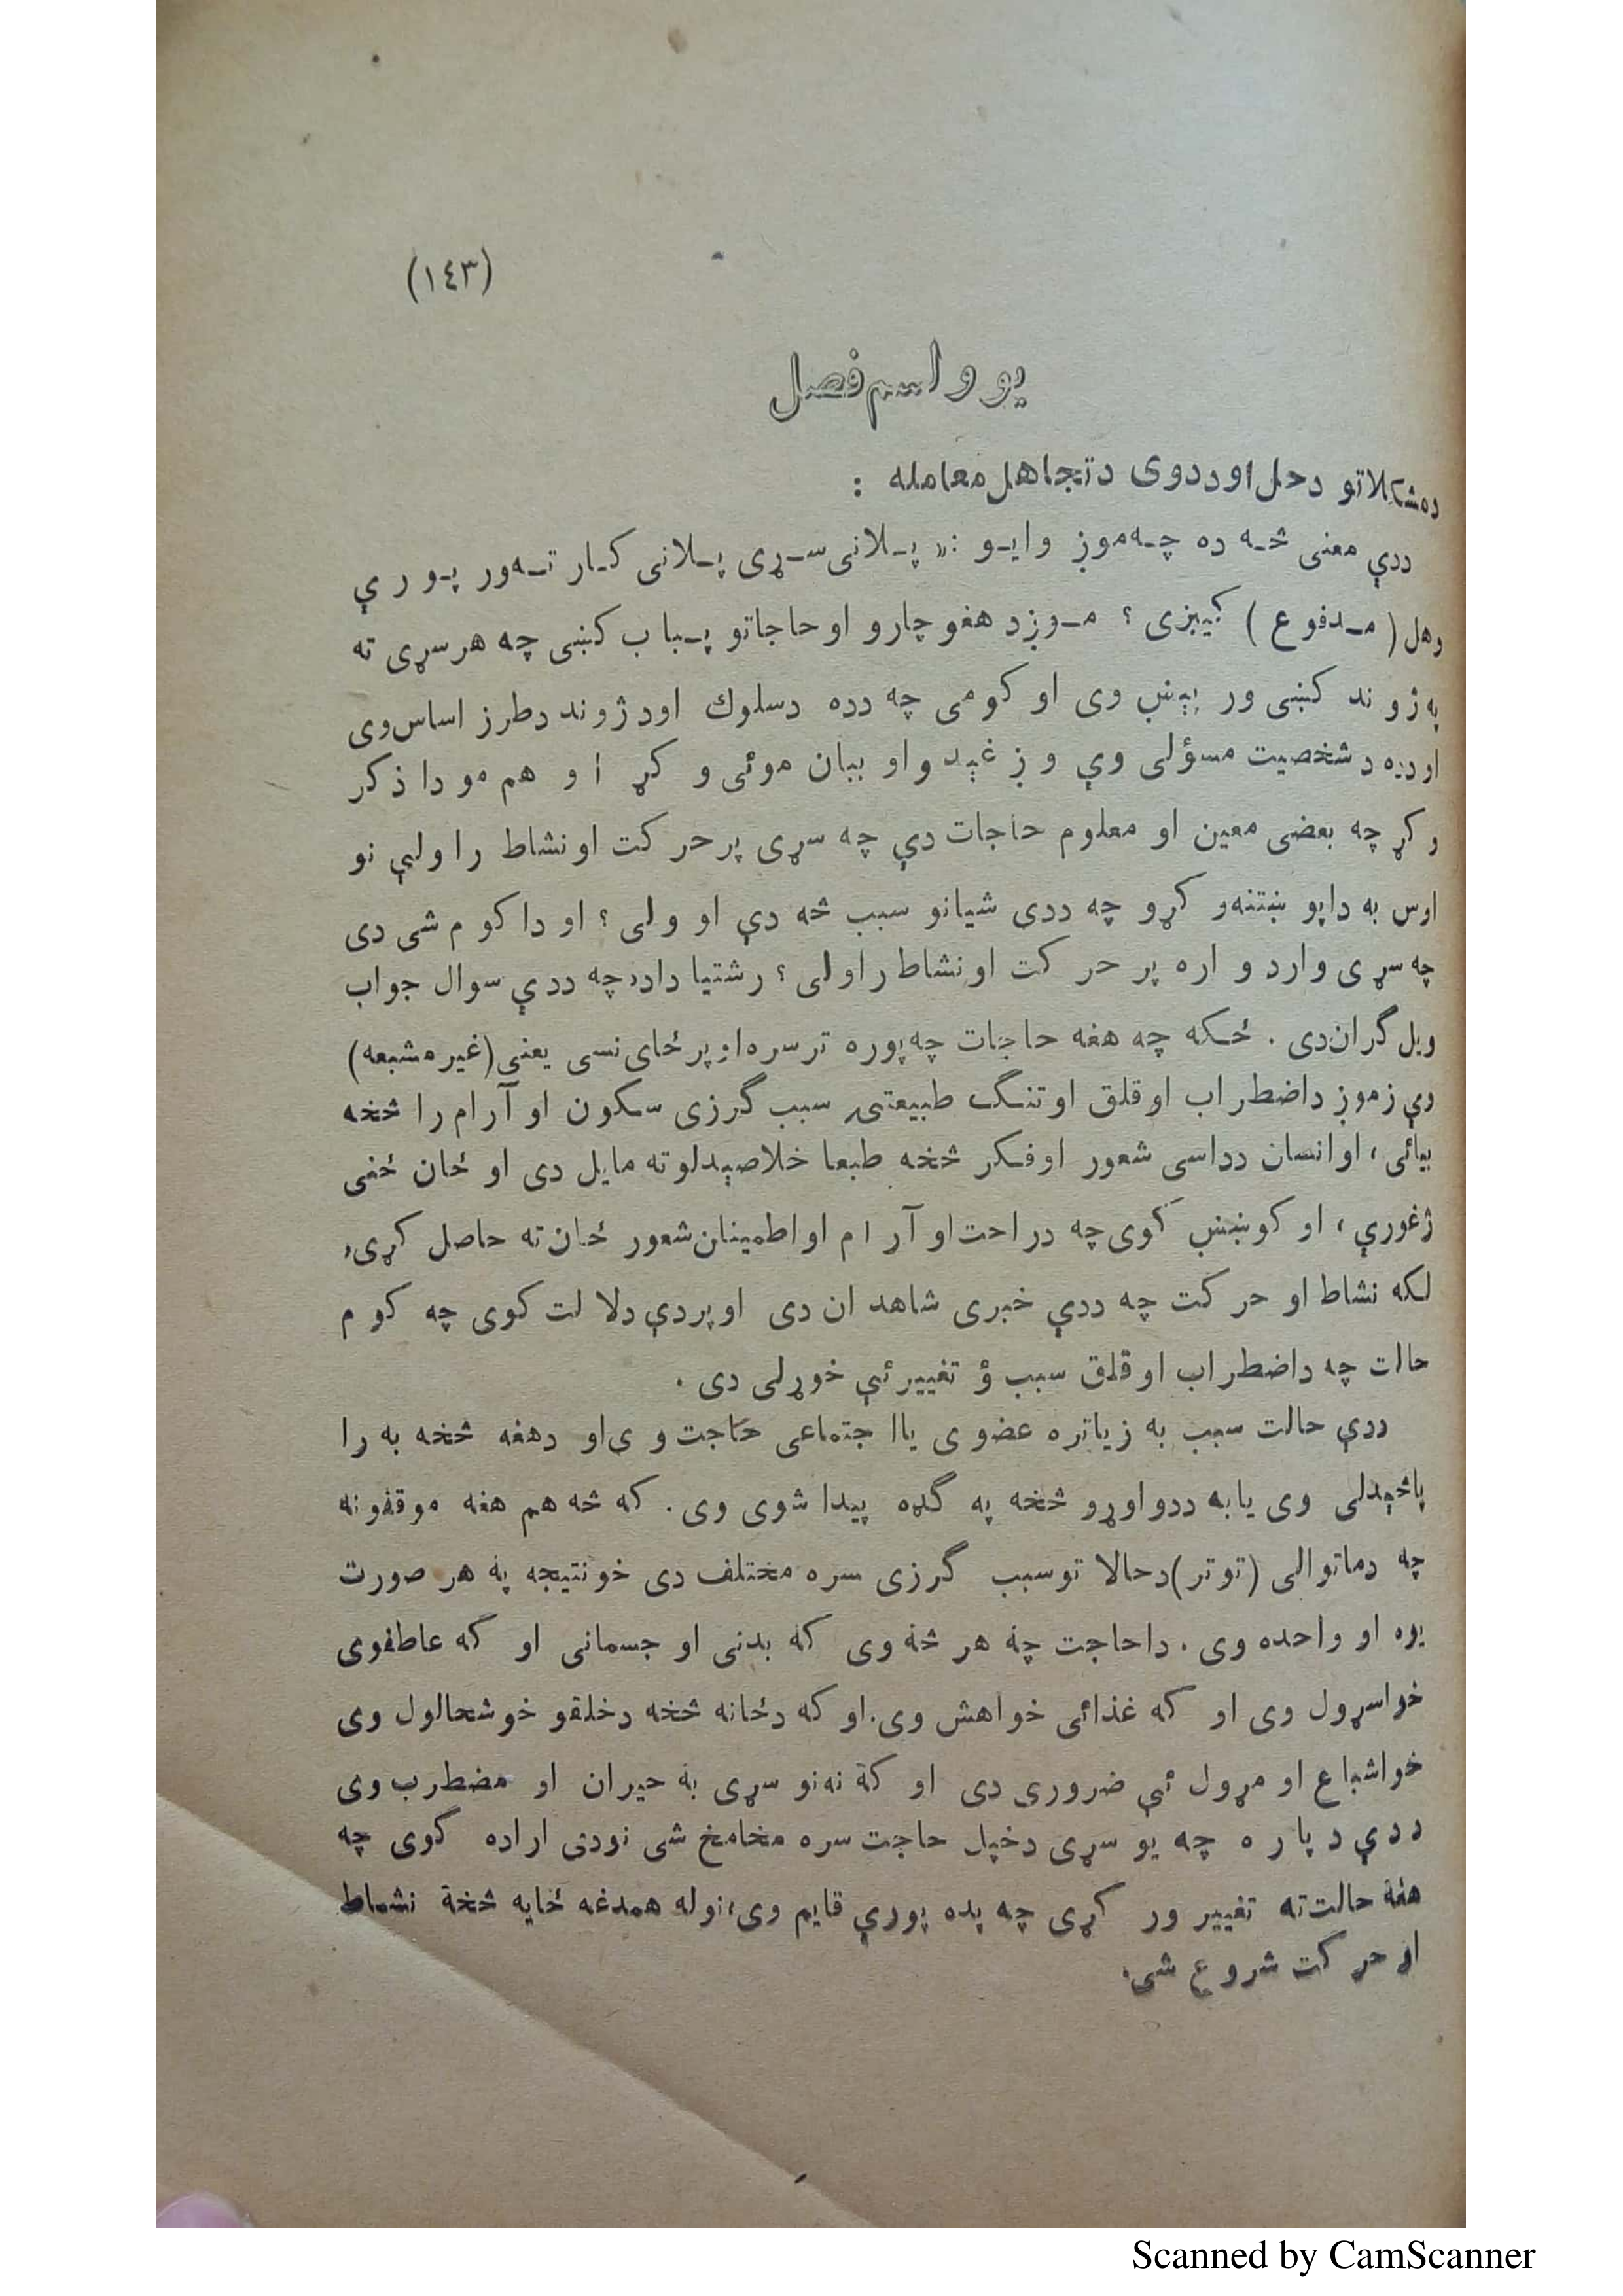 (١٤٣)
يو و اسم فصل
دمشكلاتو دحل اوددوى دتجاهل معامله :
ددې معنى څه ده چه موږ وايو :« پلانى سړى پلانى كار ته ور پورې
وهل ( مدفوع ) كيبزى ؟ موږد هغو چارو اوحاجاتو په باب كښى چه هرسړى ته
په ژوند كښى ور پېښ وى او كومى چه دده دسلوك اودژوند دطرز اساس وى
اودده دشخصيت مسؤلى وې وږغېدو او بيان موئى وكړ او هم مو دا ذكر
وكړ چه بعضى معين او معلوم حاجات دې چه سړى پرحركت اونشاط راولېې نو
اوس به داپو ښتنه وكړو چه ددى شيانو سبب څه دې او ولى ؟ او داكوم شى دى
چه سړى وارد واره پر حركت اونشاط راولى ؟ رشتيا داده چه ددې سوال جواب
ويل گران دى . ځكه چه هغه حاجات چه پوره ترسره اوپر ځاى نسى يعنى (غيرمشبعه)
وې زموږ داضطراب اوقلق اوتنگ طبيعتۍ سبب گرزى سكون اوآرام را څخه
بيائى، اوانسان دداسى شعور اوفكر څخه طبعا خلاصېدلوته مايل دى او ځان ځنى
ژغورې، او كوښښ كوى چه دراحت او آرام اواطمينان شعور ځان ته حاصل كړى،
لكه نشاط او حركت چه ددې خبرى شاهد ان دى اوپردې دلالت كوى چه كوم
حالت چه داضطراب اوقلق سبب ؤ تغييرئې خوړلى دى .
ددې حالت سبب به زياتره عضوى يااجتماعى حاجت وى او دهغه څخه به را
پاڅېدلى وى يابه ددواوړو څخه په گډه پيدا شوى وى . كه څه هم هغه موقفونه
چه دماتوالى (توتر)دحالاتوسبب گرزى سره مختلف دى خونتيجه په هر صورت
يوه او واحده وى . داحاجت چه هر څه وى كه بدنى او جسمانى او كه عاطفوى
خواسړول وى او كه غذائى خواهش وى.او كه دځانه څخه دخلقو خوشحالول وى
خواشباع او مړول ئې ضرورى دى او كه نه نو سړى به حيران او مضطرب وى
ددې دپاره چه يو سړى دخپل حاجت سره مخامخ شى نودى اراده كوى چه
هغه حالت ته تغيير ور كړى چه پده پورې قايم وى، نوله همدغه ځايه څخه نشاط
او حركت شروع شى.
Scanned by CamScanner